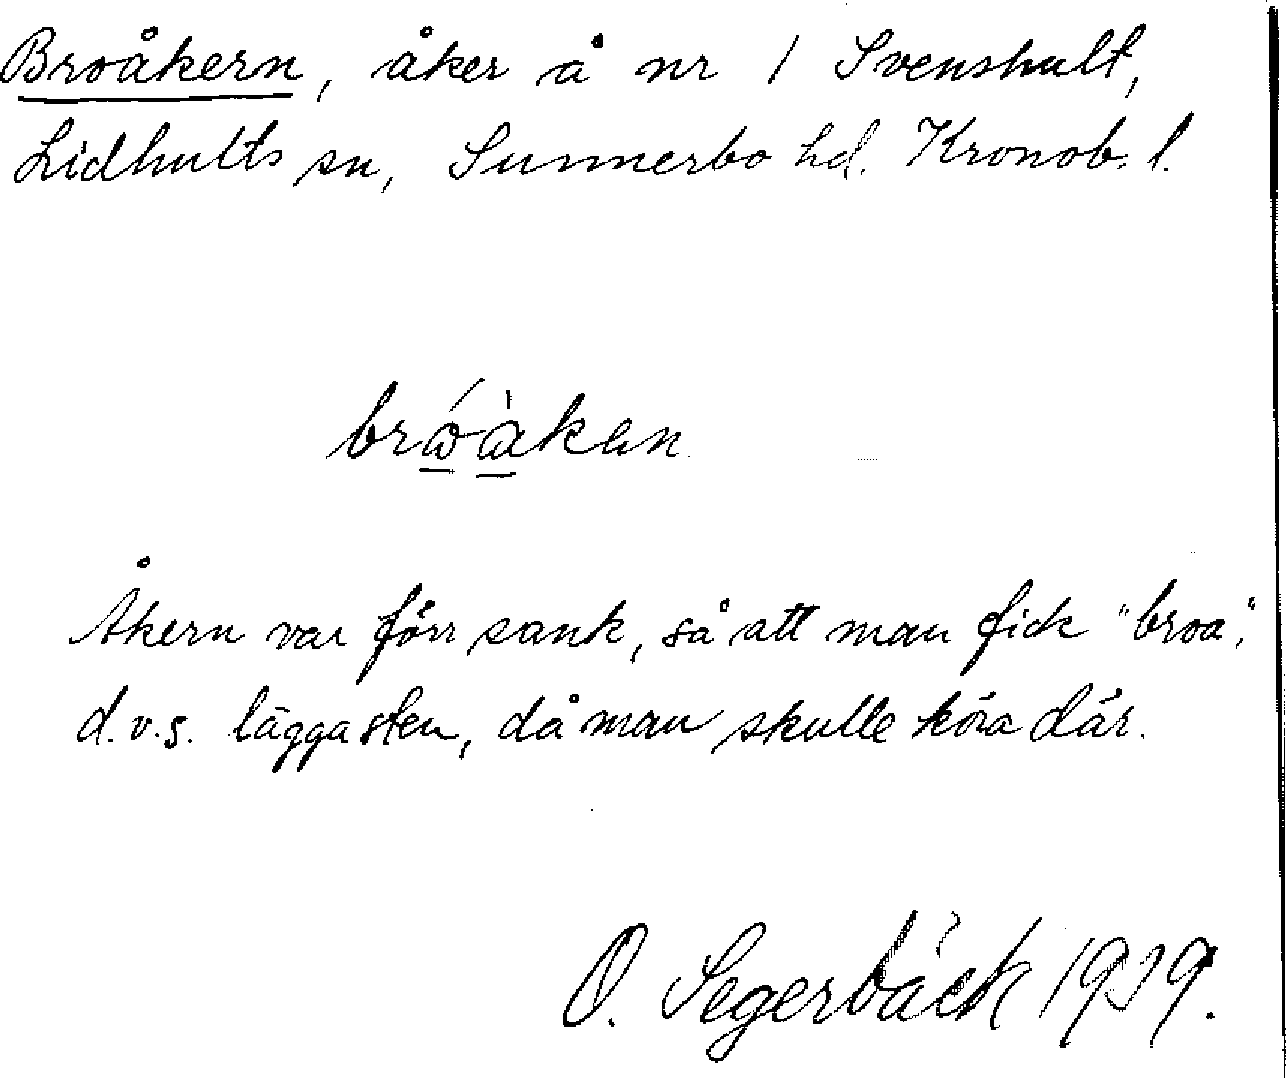 Broåkern, åker å nr 1 Svenshult,
Lidhults sn, Sunnerbo hd. Kronob. l.
Åkern var förr sank, så att man fick "broa",
d.v.s. lägga sten, då man skulle köra där.
O. Segerbäck 1939.